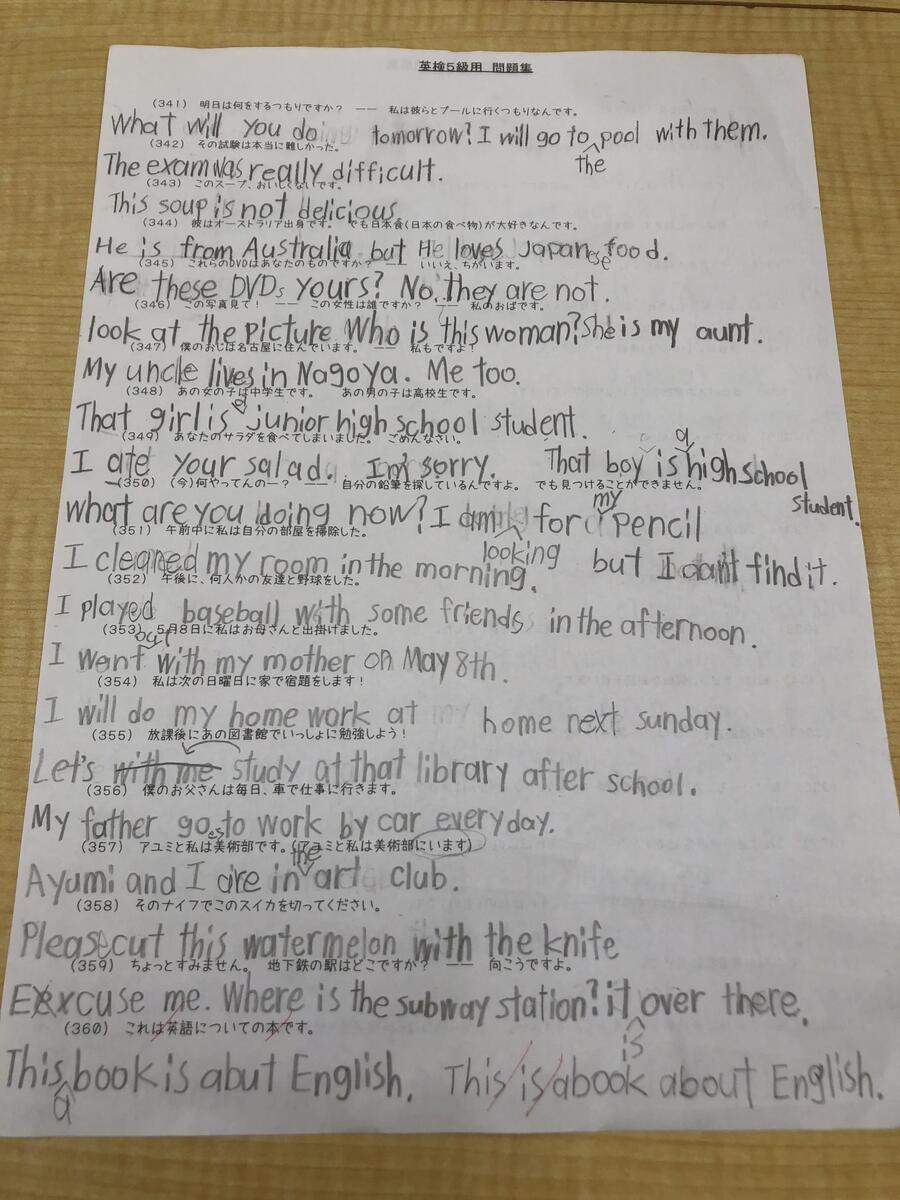 英検５級用 問題集
(341) 明日は何をするつもりですか？ —— 私は彼らとプールに行くつもりなんです。
What will you do tomorrow? I will go to pool with them.
the
(342) その試験は本当に難しかった。
The exam was really difficult.
(343) このスープ、おいしくないです。
This soup is not delicious.
(344) 彼はオーストラリア出身です。 でも日本食(日本の食べ物)が大好きなんです。
He is from Australia but He loves Japanese food.
(345) これらのDVDはあなたのものですか？ —— いいえ、ちがいます。
Are these DVDs yours? No, they are not.
(346) この写真見て！ —— この女性は誰ですか？ —— 私のおばです。
look at the picture Who is this woman? She is my aunt.
(347) 僕のおじは名古屋に住んでいます。 —— 私もですよ！
My uncle lives in Nagoya. Me too.
(348) あの女の子は中学生です。 あの男の子は高校生です。
a
That girl is junior high school student.
(349) あなたのサラダを食べてしまいました。 ごめんなさい。
a
I ate your salad. I'm sorry. That boy is high school
student.
(350) (今)何やってんの－？ —— 自分の鉛筆を探しているんですよ。 でも見つけることができません。
my
what are you doing now? I am for pencil
looking
but I can't find it.
(351) 午前中に私は自分の部屋を掃除した。
I cleaned my room in the morning.
(352) 午後に、何人かの友達と野球をした。
I played baseball with some friends in the afternoon.
(353) ５月８日に私はお母さんと出掛けました。
out
I went with my mother on May 8th.
(354) 私は次の日曜日に家で宿題をします！
I will do my home work at home next sunday.
(355) 放課後にあの図書館でいっしょに勉強しよう！
Let's with me study at that library after school.
(356) 僕のお父さんは毎日、車で仕事に行きます。
My father goes to work by car every day.
(357) アユミと私は美術部です。(アユミと私は美術部にいます)
the
Ayumi and I are in art club.
(358) そのナイフでこのスイカを切ってください。
Please cut this watermelon with the knife
(359) ちょっとすみません。 地下鉄の駅はどこですか？ —— 向こうですよ。
Excuse me. Where is the subway station? it over there.
is
(360) これは英語についての本です。
This book is abut English. This is a book about English.
a